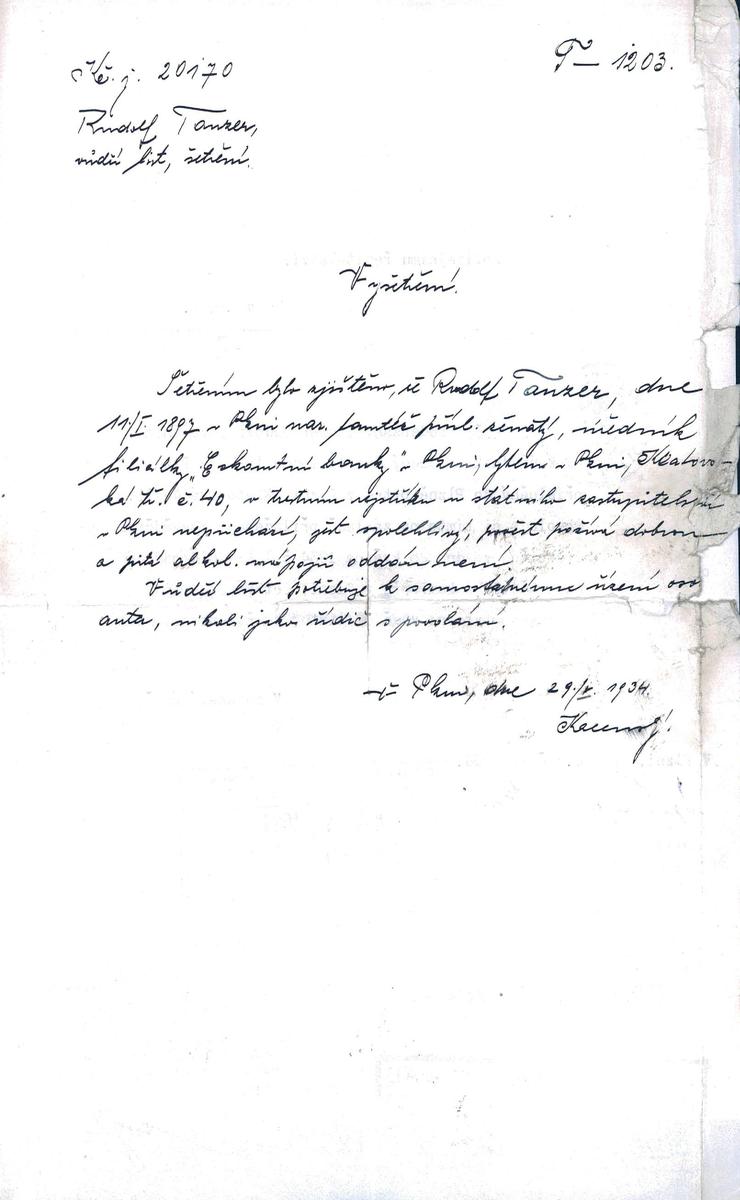 K č. j. 20170
T – 1203.
Rudolf Tanzer,
vůdčí list, šetření.
Vyšetření.
Šetřením bylo zjištěno, že Rudolf Tanzer, dne
11./I. 1897 v Plzni nar. tamtéž přísl. ženatý, úředník
filiálky „Eskomtní banky" v Plzni, bytem v Plzni, Klatovs-
ká tř. č. 40, v trestním rejstříku u státního zastupitelství
v Plzni nepřichází, jest spolehlivý, pověst požívá dobrou
a pití alkol. nápojů oddán není.
Vůdčí list potřebuje k samostatnému řízení oso
auta, nikoli jako řidič s povolání.
V Plzni, dne 29./V. 1934.